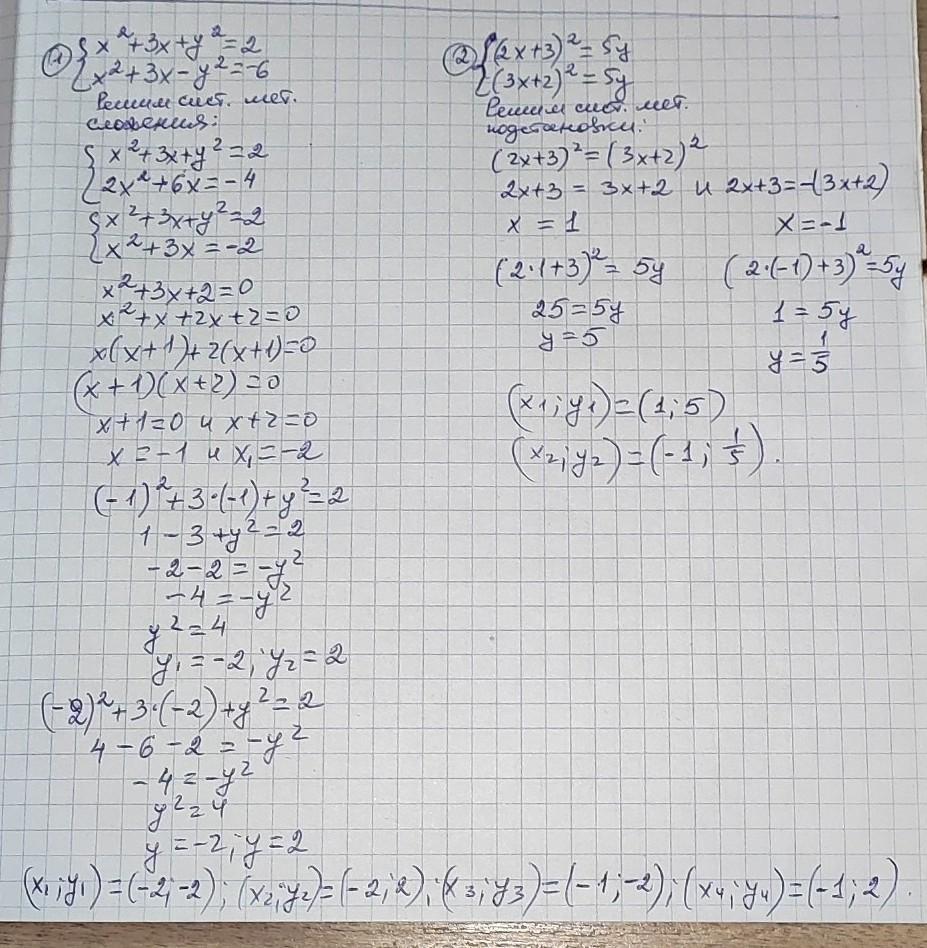 ① { x²+3x+y²=2
x²+3x-y²=-6
Решим сист. мет.
сложения:
{ x²+3x+y²=2
2x²+6x=-4
{ x²+3x+y²=2
x²+3x=-2
x²+3x+2=0
x²+x+2x+2=0
x(x+1)+2(x+1)=0
(x+1)(x+2)=0
x+1=0 и x+2=0
x=-1 и x₁=-2
(-1)²+3·(-1)+y²=2
1-3+y²=2
-2-2=-y²
-4=-y²
y²=4
y₁=-2; y₂=2
(-2)²+3·(-2)+y²=2
4-6-2=-y²
-4=-y²
y²=4
y=-2; y=2
(x₁;y₁)=(-2;-2); (x₂;y₂)=(-2;2); (x₃;y₃)=(-1;-2); (x₄;y₄)=(-1;2).
② { (2x+3)²=5y
(3x+2)²=5y
Решим сист. мет.
подстановки:
(2x+3)²=(3x+2)²
2x+3=3x+2 и 2x+3=-(3x+2)
x=1 x=-1
(2·1+3)²=5y (2·(-1)+3)²=5y
25=5y 1=5y
y=5 y=1/5
(x₁;y₁)=(1;5)
(x₂;y₂)=(-1;1/5).